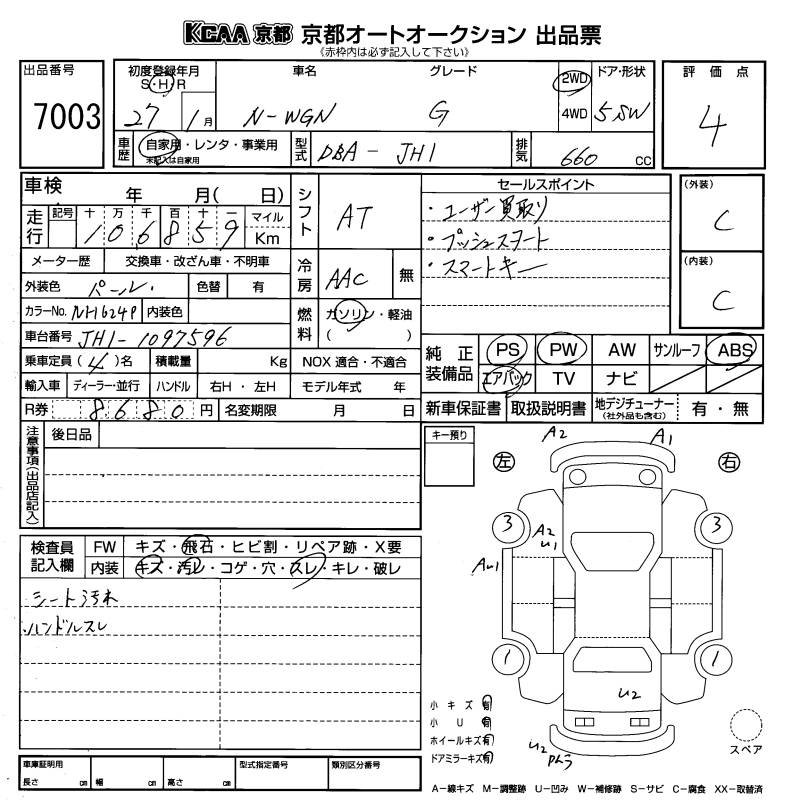 KCAA 京都 京都オートオークション 出品票
《赤枠内は必ず記入して下さい》
出品番号 7003
初度登録年月 S・H・R 27年 1月
車名 N-WGN
グレード G
2WD 4WD
ドア・形状 5SW
評価点 4
車歴 自家用・レンタ・事業用
未記入は自家用
型式 DBA-JH1
排気 660 cc
車検 年 月( 日)
シフト AT
セールスポイント
・ユーザー買取り
・プッシュスタート
・スマートキー
(外装) C
(内装) C
走行 記号 十 万 千 百 十 一 マイル Km
106859
メーター歴 交換車・改ざん車・不明車
冷房 AAC 無
外装色 パール 色替 有
カラーNo. NH624P 内装色
燃料 ガソリン・軽油 ( )
車台番号 JH1-1097596
乗車定員(4)名 積載量 Kg NOX 適合・不適合
輸入車 ディーラー・並行 ハンドル 右H・左H モデル年式 年
R券 8680円 名変期限 月 日
純正装備品 PS PW AW サンルーフ ABS
エアバック TV ナビ
新車保証書 取扱説明書 地デジチューナー (社外品も含む) 有・無
注意事項(出品店記入)
後日品
キー預り
左 右
A2 A1
3 3
A2
U1
AU1
1 1
U2
U2
検査員記入欄
FW キズ・飛石・ヒビ割・リペア跡・X要
内装 キズ・汚レ・コゲ・穴・スレ・キレ・破レ
シート汚れ
ハンドルスレ
小キズ 有
小U 有
ホイールキズ 有
ドアミラーキズ 有
スペア
車庫証明用 長さ cm 幅 cm 高さ cm
型式指定番号
類別区分番号
A-線キズ M-調整跡 U-凹み W-補修跡 S-サビ C-腐食 XX-取替済